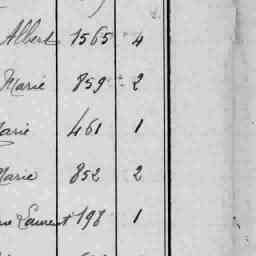 Albert 1565 4
Marie 859 2
Marie 461 1
Marie 852 2
Laurent 198 1